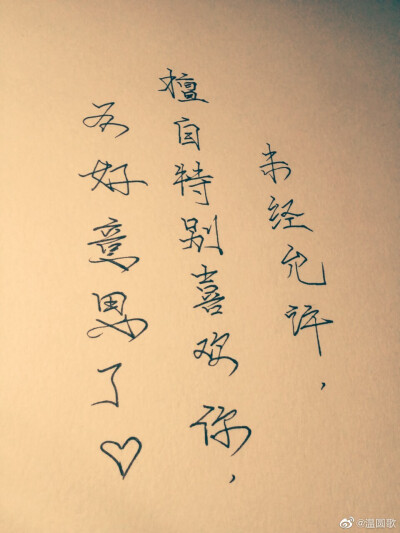 未经允许，
擅自特别喜欢你，
不好意思了♡
@温圆歌